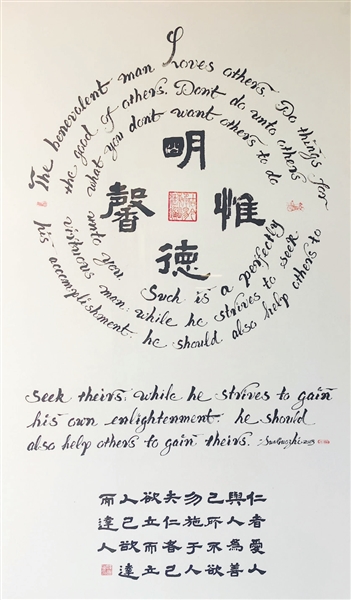 The benevolent man Loves others. Do things for
the good of others. Dont do unto others
what you dont want others to do
unto you
Such is a perfectly
virtuous man. while he strives to seek
his accomplishment. he should also help others to
明德惟馨
seek theirs. While he strives to gain
his own enlightenment. he should
also help others to gain theirs.
仁者愛人
與人為善
己所不欲
勿施于人
夫仁者己
欲立而立
人己欲達
而達人